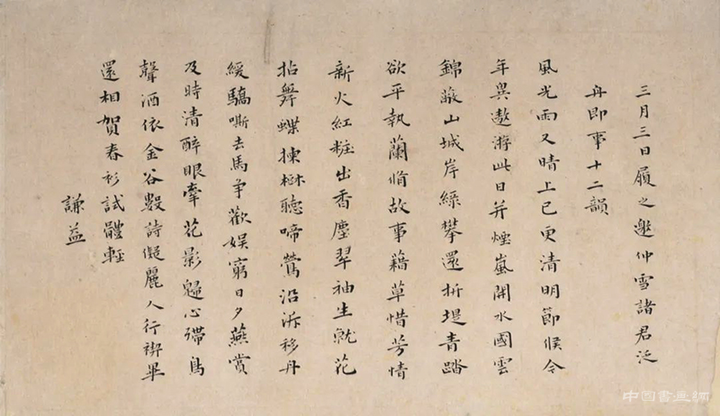 三月三日履之邀仲雪諸君泛
舟即事十二韻
風光雨又晴上巳更清明節候今
年異遨遊此日并煙嵐開水國雲
錦蔽山城岸綠攀還折堤青踏
欲平執蘭脩故事藉草惜芳情
新火紅粧出香塵翠袖生就花
拈舞蝶揀樹聽啼鶯沿泝移丹
綬驕嘶去馬爭歡娛窮日夕燕賞
及時清醉眼牽花影心殢鳥
聲酒依金谷數詩儗麗人行禊畢
還相賀春衫試體輕
謙益
中国書画網